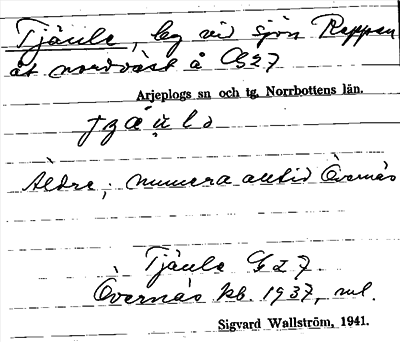 Tjäule, lag vid sjön Rappen
åt nordväst å G27
Arjeplogs sn och tg. Norrbottens län.
Äldre; numera alltid Övernäs
Tjäule G27.
Övernäs kb. 1937, ml.
Sigvard Wallström, 1941.